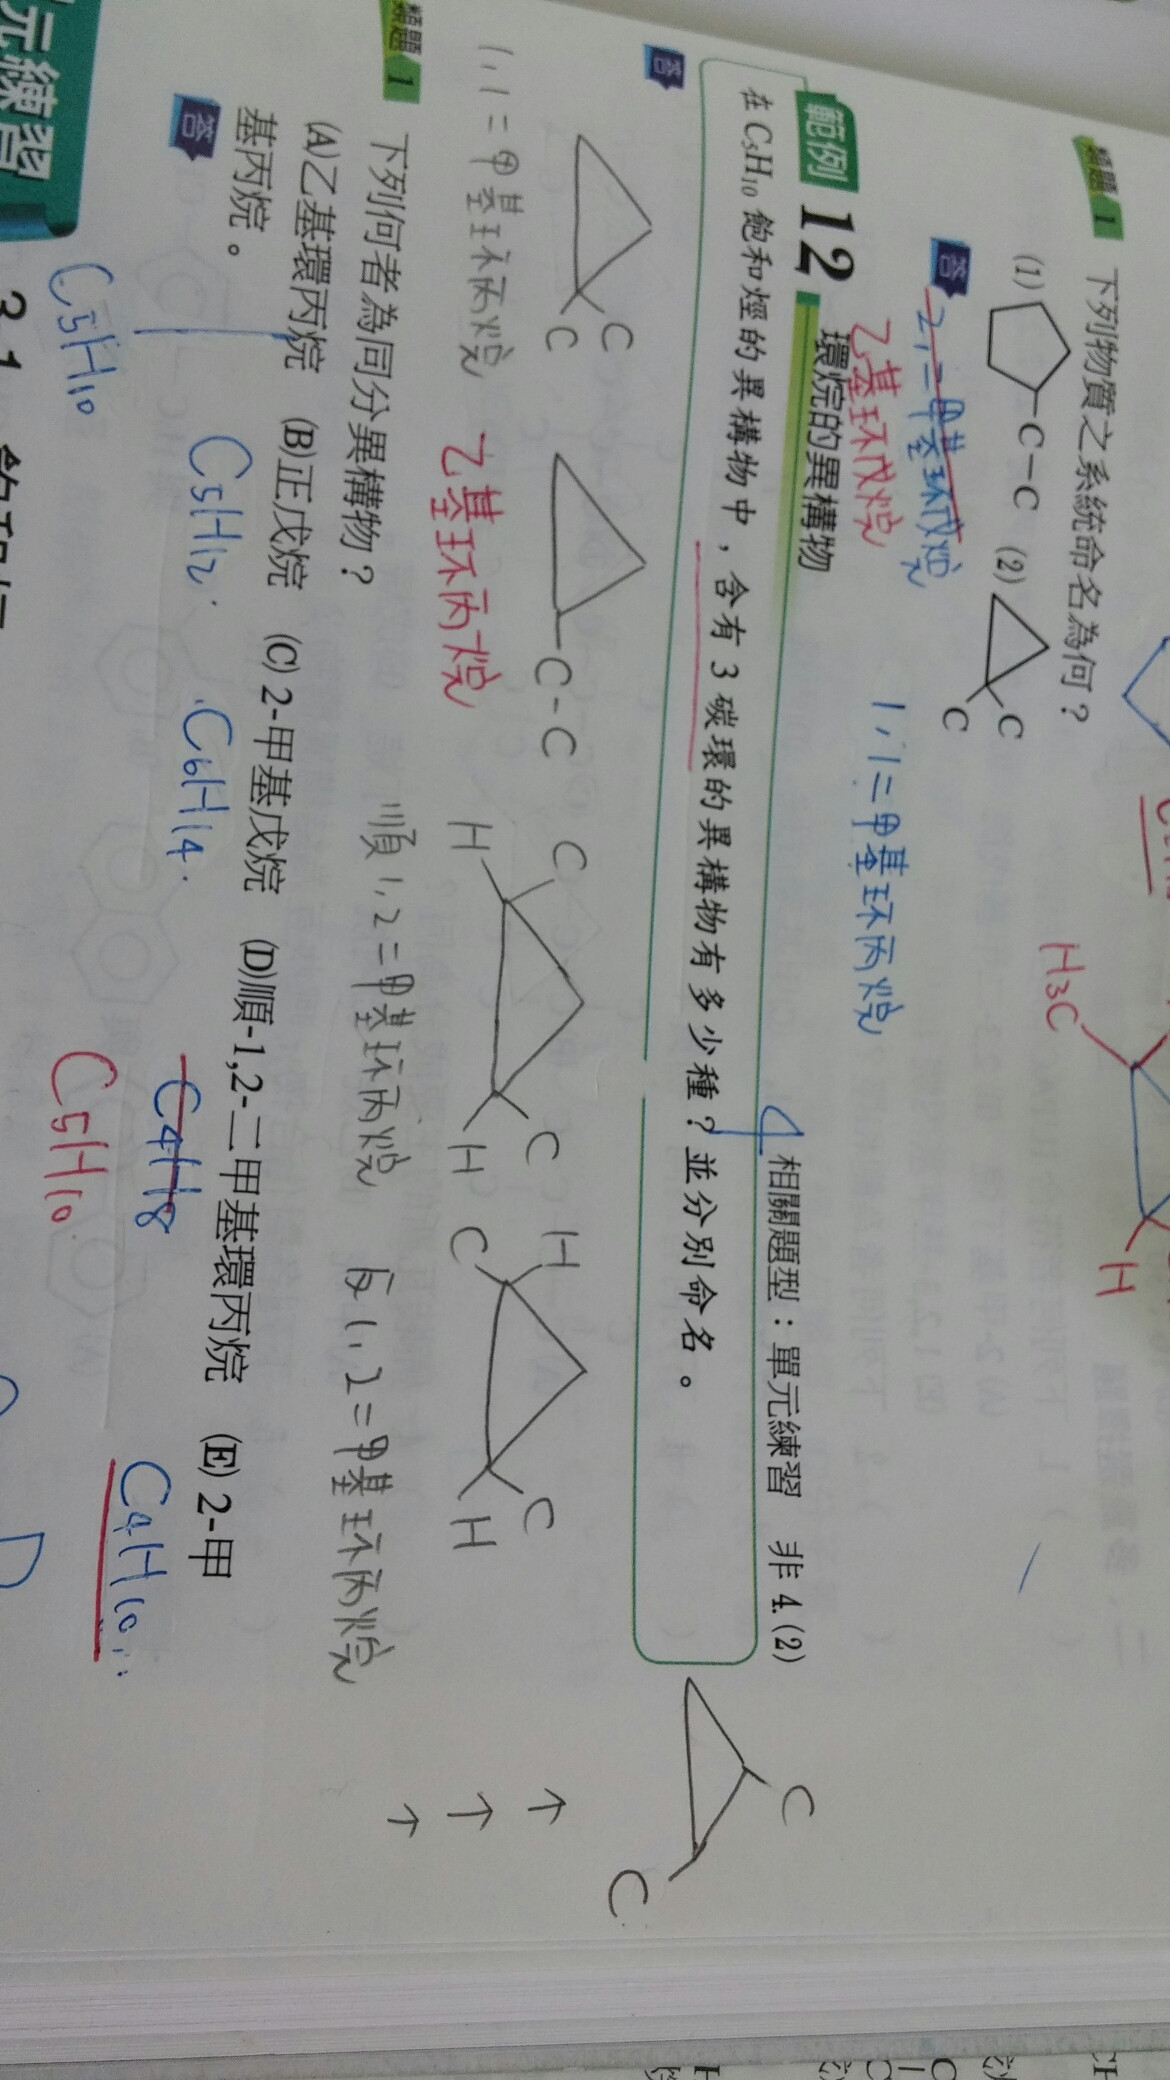 類題 1
下列物質之系統命名為何？
(1) C-C (2) C C
答 2,2=甲基环戊烷
乙基环戊烷
1,1=甲基环丙烷
H3C
H
範例 12 環烷的異構物
相關題型：單元練習 非 4.(2)
在 C5H10 飽和烴的異構物中，含有 3 碳環的異構物有多少種？並分別命名。
4
答
C C
C-C
C H C H
H C C H
C C
1,1=甲基环丙烷
乙基环丙烷
順1,2=甲基环丙烷
反1,2=甲基环丙烷
↑ ↑ ↑
類題 1
下列何者為同分異構物？
(A)乙基環丙烷 (B)正戊烷 (C) 2-甲基戊烷 (D)順-1,2-二甲基環丙烷 (E) 2-甲
基丙烷。
答
C5H10
C5H12
C6H14
C4H8
C5H10
C4H10
D
元練習
3-1